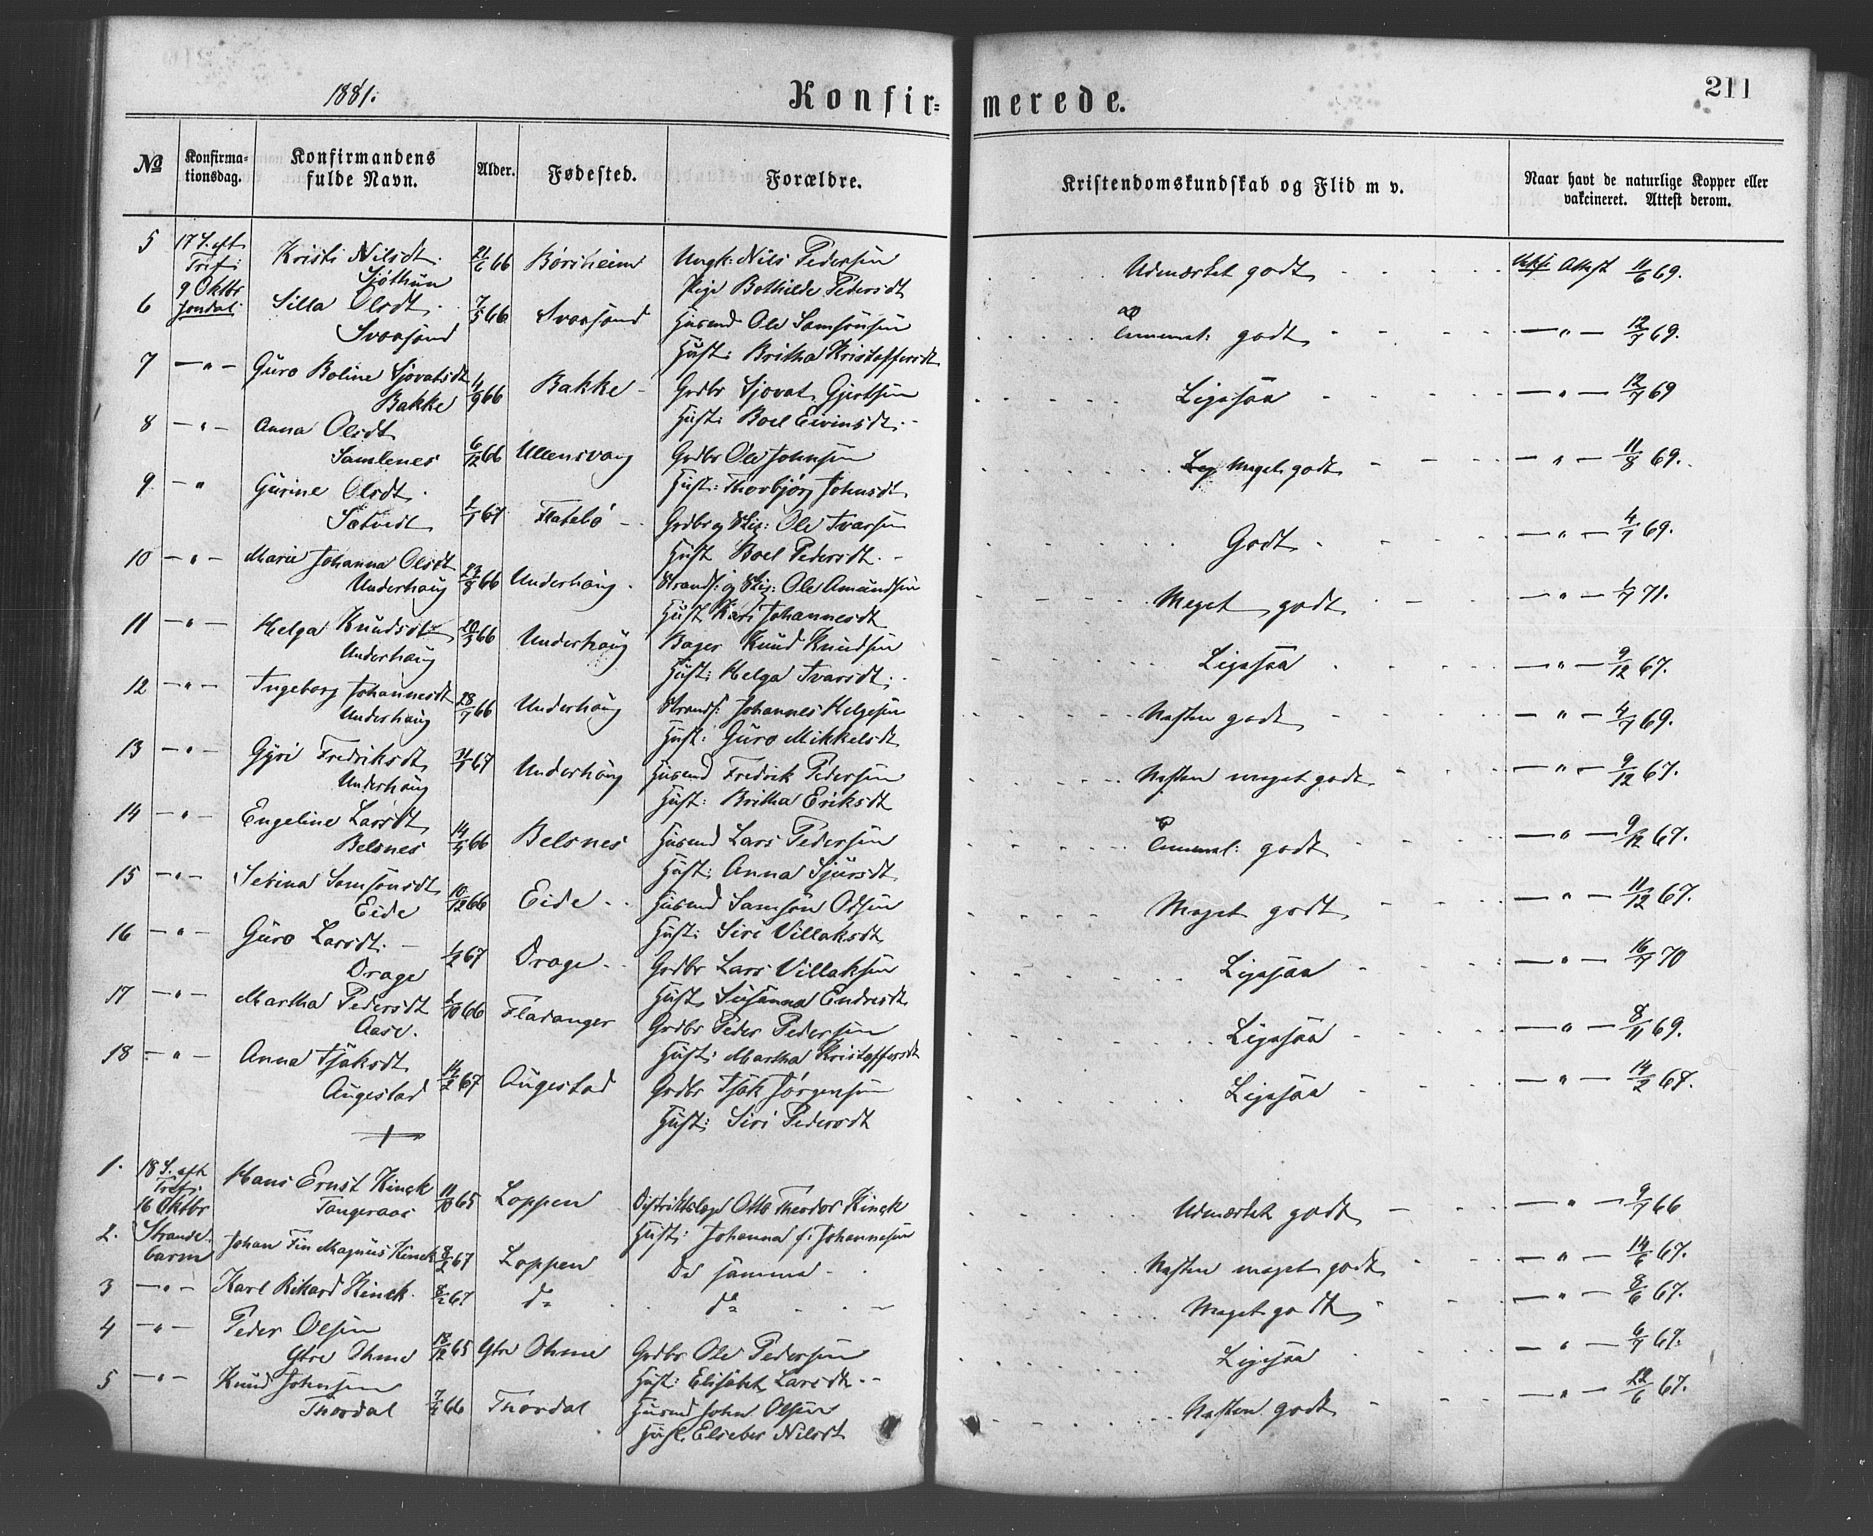 211
1881.
Konfir= merede.
No Konfirma- tionsdag. Konfirmandens fulde Navn. Alder. Fødested. Forældre. Kristendomskundskab og Flid m v. Naar havt de naturlige Kopper eller vakcineret. Attest derom.
5 17 S. eft Kristi Nilsdt. 21/6 66 Børsheim Ungk: Nils Pedersen Udmærket godt Attest 11/6 69.
Trif: Sjøthun Pige Bothilde Pedersdt
9 Oktbr
6 Jondal Silla Olsdt. 7/5 66 Svaasand Husmd Ole Samsonsen godt — " — 12/7 69.
Svaasand Hust: Britha Kristoffersdt
7 — " — Guro Boline Sjovatsdt 4/9 66 Bakke Grdbr Sjovat Gjertsen Ligesaa — " — 12/7 69
Bakke Hust: Boel Eivinsdt.
8 — " — Anna Olsdt 6/12 66 Ullensvang Grdbr Ole Johnsen Meget godt — " — 11/8 69.
Samlenes Hust: Thorbjørg Johnsdt
9 — " Gurine Olsdt. 67 Flatebø Ole Ivarsen Godt — " — 4/7 69.
Sætvedt Hust Boel Pedersdt.
10 — " — Marie Johanna Olsdt 23/8 66 Underhaug Strands: og Ole Amundsen Meget godt — " — 71.
Underhaug Hust Kari Johannesdt
11 — " — Helga Knudsdt 20/3 66 Underhaug Bager Knud Knudsen Ligesaa — " — 9/12 67.
Underhaug Hust: Helga Ivarsdt.
12 — " — Ingeborg Johannesdt 28/7 66 Underhaug Strands: Johannes Helgesen Næsten godt — " — 4/7 69.
Underhaug Hust: Guro Mikkelsdt
13 — " — Gyri Fredriksdt 67 Underhaug Husmd Fredrik Pedersen Næsten meget godt — " — 9/12 67.
Underhaug Hust: Britha Eriksdt
14 — " — Engeline Larsdt 66 Belsnes Husmd Lars Pedersen godt — " — 9/12 67.
Belsnes Hust: Anna Sjursdt
15 — " — Sevina Samsonsdt 10/12 66 Eide Husmd Samson Olsen Meget godt — " — 11/12 67.
Eide Hust: Siri Villaksdt
16 — " — Guro Larsdt. 67 Drage Grdbr Lars Villaksen Ligesaa — " — 16/7 70
Drage Hust Susanna Endresdt
17 — " — Martha Pedersdt 66 Fladanger Grdbr Peder Pedersen Ligesaa — " — 8/11 69.
Aase. Hust: Martha Kristoffersdt
18 — " — Anna Isaksdt 14/2 67 Augestad Grdbr Isak Jørgensen Ligesaa — " — 14/2 67.
Augestad Hust: Siri Pedersdt
1. 18 S. eft Hans Ernst Kinck 11/10 65 Loppen Distriktslæge Otto Theodor Kinck Udmærket godt — " — 9/7 66
Trif: Tangeraas Hust: Johanna f: Johannesen
16 Oktbr
2. Strande- Johan Fin Magnus Kinck 8/2 67 Loppen De samme Næsten meget godt — " — 14/6 67.
barm
3 — " — Karl Rikard Kinck 8/2 67 do do Meget godt — " — 8/6 67.
4 — " — Peder Olsen 18/12 65 Ytre Ohme Grdbr Ole Pedersen Ligesaa — " — 6/7 67.
Ytre Ohme Hust: Elisabet Larsdt
5 — " — Knud Johnsen 66 Thordal Husmd John Olsen Næsten godt — " — 22/6 67.
Thordal Hust. Elsebe Nilsdt